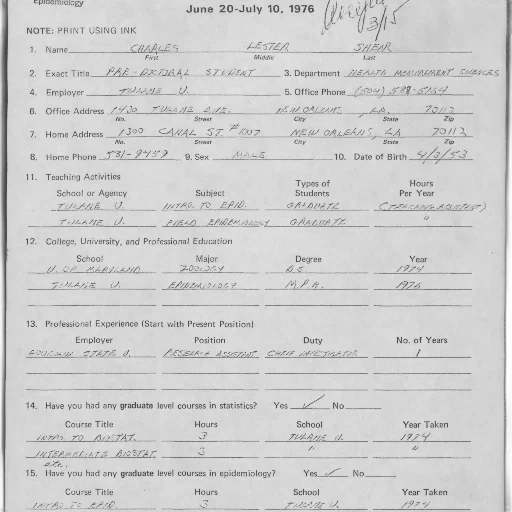 Epidemiology
June 20-July 10, 1976
3/15
NOTE: PRINT USING INK
1. Name CHARLES LESTER SHEAR
First Middle Last
2. Exact Title PRE-DOCTORAL STUDENT 3. Department HEALTH MEASUREMENT SCIENCES
4. Employer TULANE U. 5. Office Phone (504) 588-5164
6. Office Address 1430 TULANE AVE. NEW ORLEANS, LA. 70112
No. Street City State Zip
7. Home Address 1300 CANAL ST. # NEW ORLEANS, LA 70112
No. Street City State Zip
8. Home Phone 531-9459 9. Sex MALE 10. Date of Birth 4/3/53
11. Teaching Activities
School or Agency Subject Types of Students Hours Per Year
TULANE U. INTRO. TO EPID. GRADUATE (TEACHING ASSISTANT)
TULANE U. FIELD EPIDEMIOLOGY GRADUATE "
12. College, University, and Professional Education
School Major Degree Year
U. OF MARYLAND ZOOLOGY BS 1974
TULANE U. EPIDEMIOLOGY M.P.H. 1976
13. Professional Experience (Start with Present Position)
Employer Position Duty No. of Years
STATE U. RESEARCH ASSISTANT CHIEF INVESTIGATOR 1
14. Have you had any graduate level courses in statistics? Yes ✓ No
Course Title Hours School Year Taken
INTRO. TO BIOSTAT. 3 TULANE U. 1974
INTERMEDIATE BIOSTAT. 3 " "
etc.
15. Have you had any graduate level courses in epidemiology? Yes ✓ No
Course Title Hours School Year Taken
INTRO TO EPID. 3 TULANE U. 1974